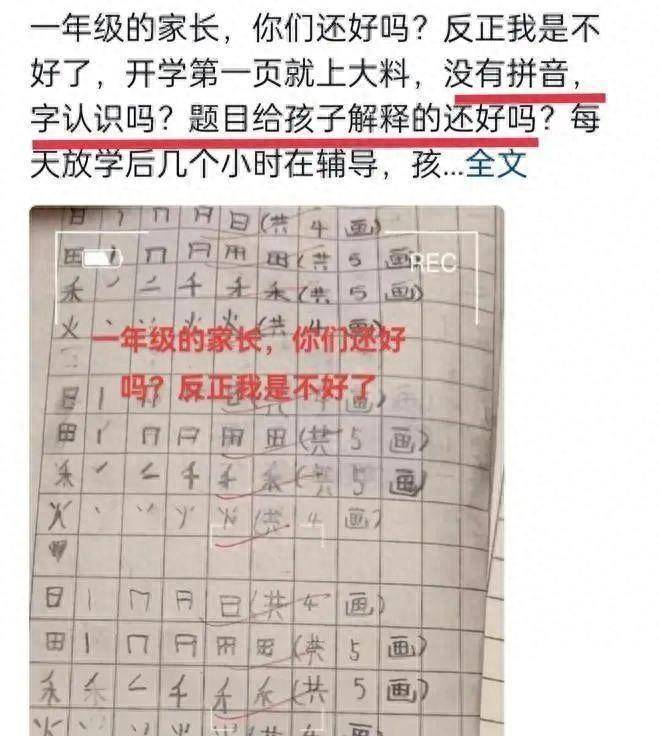 一年级的家长，你们还好吗？反正我是不
好了，开学第一页就上大料，没有拼音，
字认识吗？题目给孩子解释的还好吗？每
天放学后几个小时在辅导，孩...全文
日 丨 冂 月 日 (共 4 画)
田 丨 冂 月 用 田 (共 5 画)
REC
禾 ノ 二 千 禾 禾 (共 5 画)
火 丶 丷 火 火 (共 4 画)
一年级的家长，你们还好
吗？反正我是不好了
日 丨 冂 月 日 (共 4 画)
田 丨 冂 月 用 田 (共 5 画)
禾 ノ 二 千 禾 禾 (共 5 画)
火 丶 丷 火 (共 4 画)
日 丨 冂 月 日 (共 4 画)
田 丨 冂 月 用 田 (共 5 画)
禾 禾 二 千 禾 禾 (共 5 画)